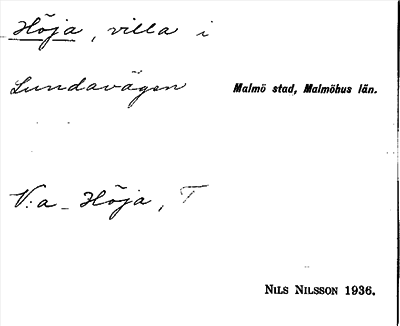 Höja, villa i
Lundavägen
Malmö stad, Malmöhus län.
V:a - Höja, T
NILS NILSSON 1936.